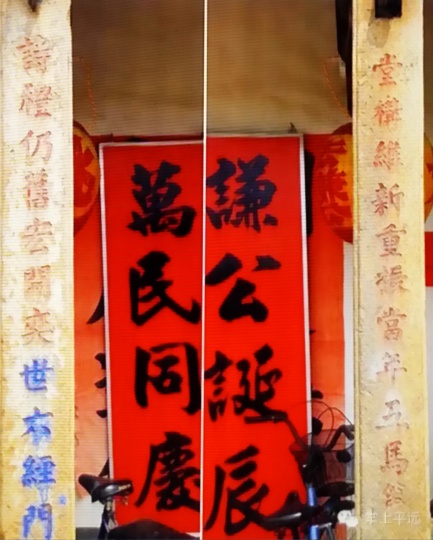 堂構維新重振當年五馬
謙公誕辰
萬民同慶
詩禮仍舊宏開奕世本經門
掌上平远